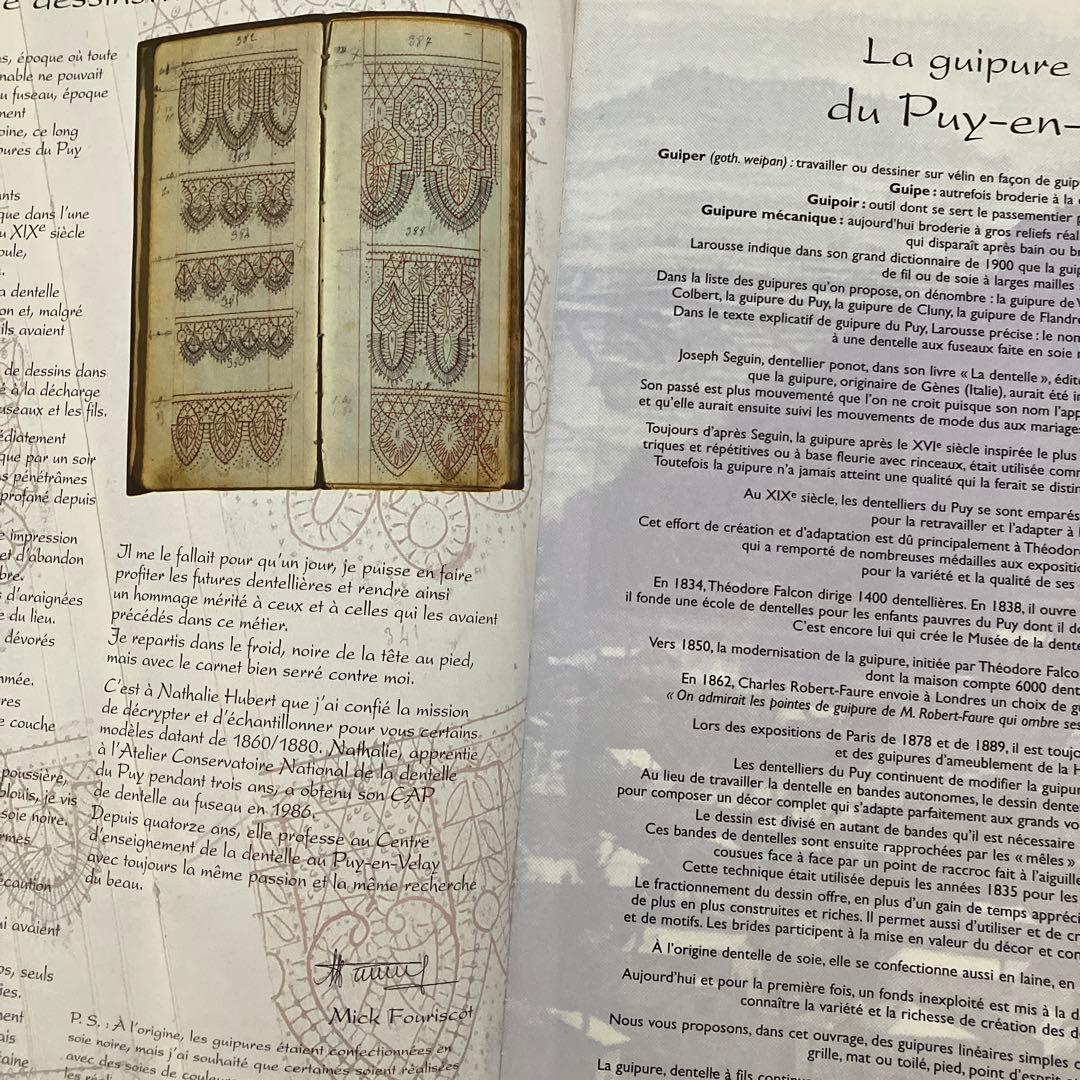 e dessins...
s, époque où toute
nable ne pouvait
u fuseau, époque
ment
oine, ce long
pures du Puy
nts
que dans l'une
u XIXe siècle
oule,
a dentelle
on et, malgré
ils avaient
de dessins dans
é à la décharge
useaux et les fils.
édiatement
que par un soir
s pénétrâmes
profané depuis
e impression
et d'abandon
bre.
s d'araignées
e du lieu.
dévorés
mmée.
res
e couche
poussière,
blouis, je vis
soie noire.
rmes
écaution
ui avaient
os, seuls
ies.
ment
ais
taine
382
387
383
384
388
Il me le fallait pour qu'un jour, je puisse en faire
profiter les futures dentellières et rendre ainsi
un hommage mérité à ceux et à celles qui les avaient
précédés dans ce métier.
Je repartis dans le froid, noire de la tête au pied,
mais avec le carnet bien serré contre moi.
C'est à Nathalie Hubert que j'ai confié la mission
de décrypter et d'échantillonner pour vous certains
modèles datant de 1860/1880. Nathalie, apprentie
à l'Atelier Conservatoire National de la dentelle
du Puy pendant trois ans, a obtenu son CAP
de dentelle au fuseau en 1986.
Depuis quatorze ans, elle professe au Centre
d'enseignement de la dentelle au Puy-en-Velay
avec toujours la même passion et la même recherche
du beau.
Mick Fouriscot
P. S. : À l'origine, les guipures étaient confectionnées en
soie noire, mais j'ai souhaité que certaines soient réalisées
avec des soies de couleu
La guipure
du Puy-en-
Guiper (goth. weipan) : travailler ou dessiner sur vélin en façon de guip
Guipe : autrefois broderie à la
Guipoir : outil dont se sert le passementier p
Guipure mécanique : aujourd'hui broderie à gros reliefs réal
qui disparaît après bain ou br
Larousse indique dans son grand dictionnaire de 1900 que la guip
de fil ou de soie à larges mailles
Dans la liste des guipures qu'on propose, on dénombre : la guipure de V
Colbert, la guipure du Puy, la guipure de Cluny, la guipure de Flandre
Dans le texte explicatif de guipure du Puy, Larousse précise : le nom
à une dentelle aux fuseaux faite en soie n
Joseph Seguin, dentellier ponot, dans son livre « La dentelle », édité
que la guipure, originaire de Gènes (Italie), aurait été in
Son passé est plus mouvementé que l'on ne croit puisque son nom l'app
et qu'elle aurait ensuite suivi les mouvements de mode dus aux mariage
Toujours d'après Seguin, la guipure après le XVIe siècle inspirée le plus
triques et répétitives ou à base fleurie avec rinceaux, était utilisée comm
Toutefois la guipure n'a jamais atteint une qualité qui la ferait se distin
Au XIXe siècle, les dentelliers du Puy se sont emparés
pour la retravailler et l'adapter à l
Cet effort de création et d'adaptation est dû principalement à Théodore
qui a remporté de nombreuses médailles aux expositio
pour la variété et la qualité de ses
En 1834, Théodore Falcon dirige 1400 dentellières. En 1838, il ouvre
il fonde une école de dentelles pour les enfants pauvres du Puy dont il de
C'est encore lui qui crée le Musée de la dente
Vers 1850, la modernisation de la guipure, initiée par Théodore Falco
dont la maison compte 6000 dent
En 1862, Charles Robert-Faure envoie à Londres un choix de g
« On admirait les pointes de guipure de M. Robert-Faure qui ombre ses
Lors des expositions de Paris de 1878 et de 1889, il est toujo
et des guipures d'ameublement de la H
Les dentelliers du Puy continuent de modifier la guipur
Au lieu de travailler la dentelle en bandes autonomes, le dessin dente
pour composer un décor complet qui s'adapte parfaitement aux grands vo
Le dessin est divisé en autant de bandes qu'il est nécessaire
Ces bandes de dentelles sont ensuite rapprochées par les « mêles »
cousues face à face par un point de raccroc fait à l'aiguille
Cette technique était utilisée depuis les années 1835 pour les
Le fractionnement du dessin offre, en plus d'un gain de temps appréci
de plus en plus construites et riches. Il permet aussi d'utiliser et de cr
et de motifs. Les brides participent à la mise en valeur du décor et con
À l'origine dentelle de soie, elle se confectionne aussi en laine, en
Aujourd'hui et pour la première fois, un fonds inexploité est mis à la d
connaître la variété et la richesse de création des d
Nous vous proposons, dans cet ouvrage, des guipures linéaires simples o
grille, mat ou toilé, pied, point d'esprit
La guipure, dentelle à fils continu